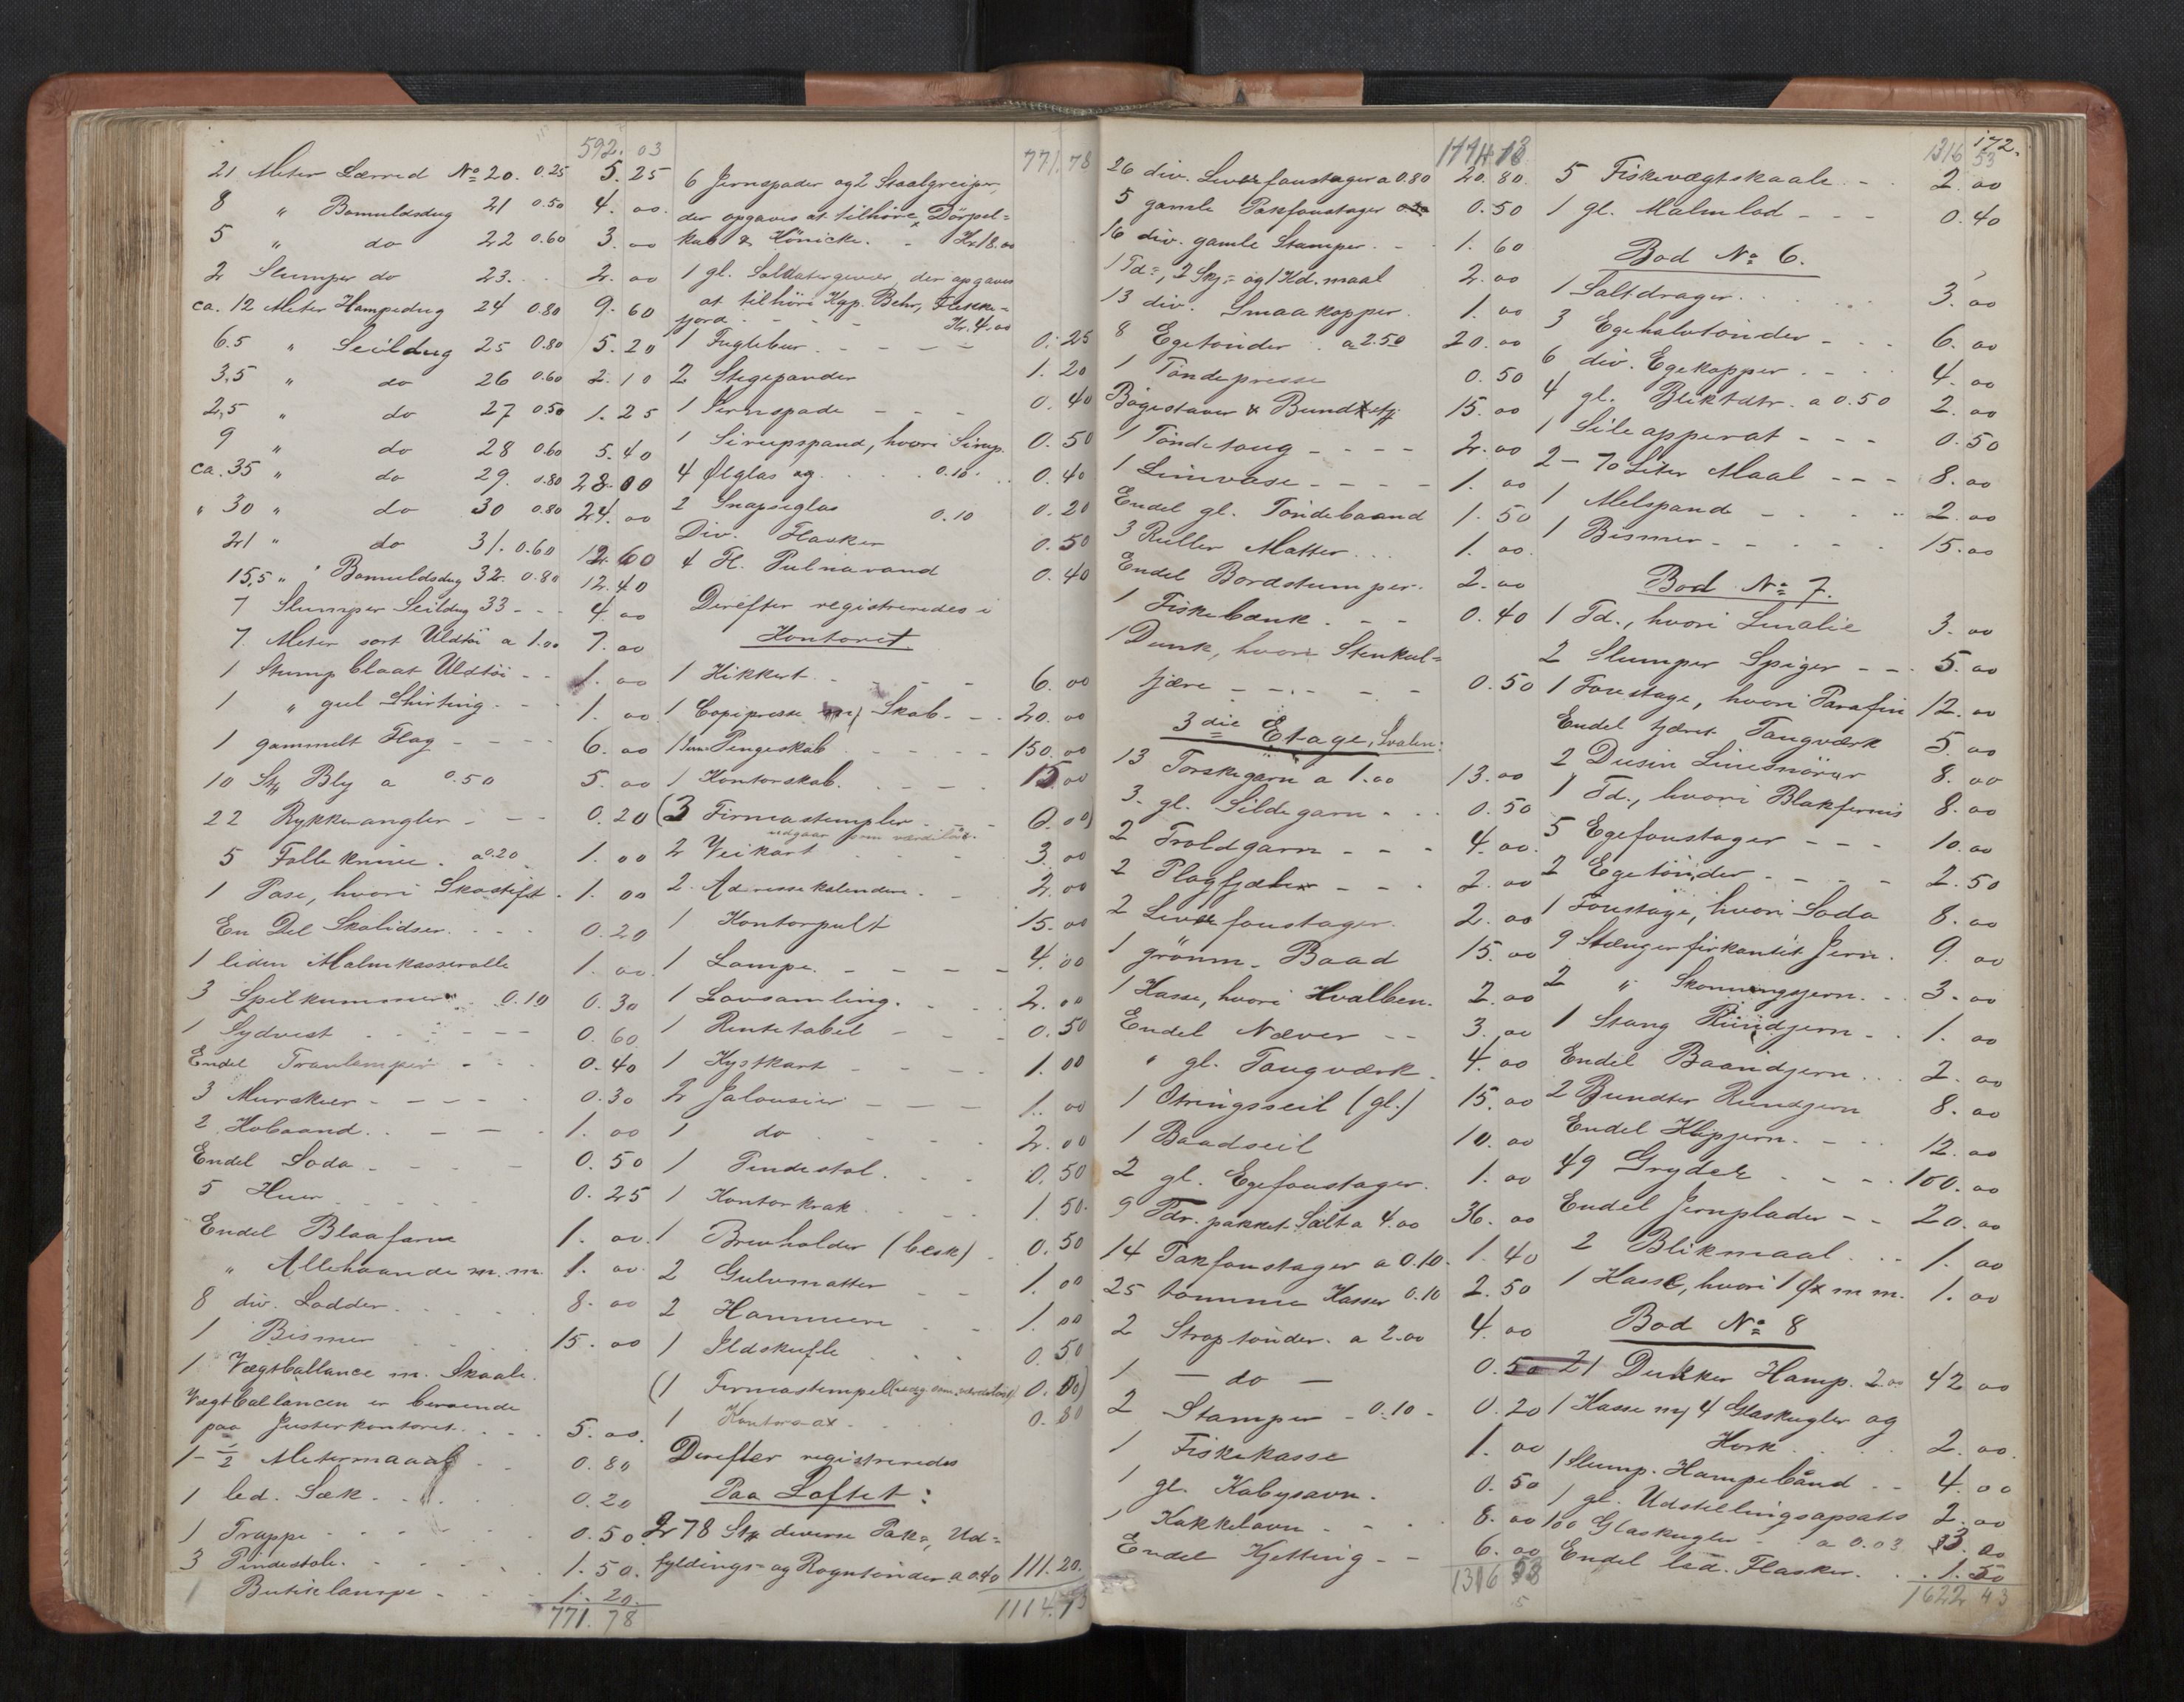 592. 03
21 Meter Lærred No 20. 0.25 5. 25
8 " Bomuldsdug 21 0.50 4. 00.
5 " do 22 0.60 3. 00
2 Slumper do 23. 2. 00
ca. 12 Meter Hampedug 24 0.80 9. 60
6.5 " Seildug 25 0.80 5. 20
3,5 " do 26 0.60 2. 10
2,5 " do 27 0.50 1. 25
9 " do 28 0.60 5. 40
ca. 35 " do 29. 0.80 28. 00
" 30 " do 30 0.80 24. 00
21 " do 31. 0.60 12. 60
15,5 " Bomuldsdug 32. 0.80 12. 40
7 Slumper Seildug 33 - - - 4. 00
7. Meter sort Uldtøi a 1.00 7. 00
1 Stump blaat Uldtøi - - 1. 00
1 " gul Shirting. - - 1. 00
1 gammelt Flag - - - - 6. 00
10 Stk Bly a 0.50 5. 00
22 Rykkerangler - - - 0. 20
5 Folleknive. a 0.20 1. 00
1 Pose, hvori Skostift. 1. 00
En Del Skolidser. - - - 0. 20
1 liden Malmkasserolle 1. 00.
3 Spilkummer. 0.10 0. 30
1 Sydvest - - - - 0. 60
Endel Tranlamper - - - 0. 40
3 Murskeer - - - - - 0. 30
2 Hobaand. - - - 1. 00
Endel Soda - - - - 0. 50
5 Huer - - - - 0. 25
Endel Blaafarve 1. 00.
" Allehaande m. m. 1. 00.
8 div. Lodder. - - - - 8. 00
1 Bismer 15. 00
1 Vægtballance m. Skaale.
Vægtballancen er beroende
paa Justerkontoret. - - - 5. 00.
1 - 1/2 Metermaal - - 0. 80
1 led. Sæk. - - - 0. 20
1 Trappe - - - - - 0. 50
3 Pindestole. - - - - 1. 50.
1 Butiklampe - - - 1. 20.
771. 78

771. 78
6 Jernspader og 2 Staalgreiper,
der opgaves at tilhøre
Kr 18.00
1 gl. Soldatergevær, der opgaves
at tilhöre Kgp. Behr, Flekke=
fjord - - - - Kr. 4.00
1 Fuglebur. - - - - 0. 25
2 Stegepander 1. 20
1 Jernspade - - - 0. 40
1 Sirupspand, hvori Sirup. 0. 50
4 Ølglas og 0.10. 0. 40
2 Snapseglas 0.10 0. 20
Div. Flasker 0. 50
4 Fl. Pulnavand 0. 40
Derefter registreredes i
Kontoret
1 Kikkert. - - - - 6. 00
1 Copipresse m/ Skab. - - 20. 00
1 Pengeskab - - - - 150. 00
1 Kontorskab. - - - - 15. 00
(3 Firmastempler - - - 0. 00)
udgaar som værdiløs.
2 Veikart - - - - 3. 00
2. Adressekalendere. - 2. 00
1 Kontorpult 15. 00
1 Lampe. - - - - 4. 00
1 Lovsamling. - - - 2. 00
1 Rentetabel - - - 0. 50
1 Kystkart - - - - 1. 00
2 Jalousier - - - 1. 00
1 do - - - 2. 00
1 Pindestol. - - - 0. 50
1 Kontorkrak - - - 1. 50.
1 Brevholder (besk) . 0. 50
2 Gulvmatter - - 1. 00
2 Hammere - - 1. 00
1 Ildskuffe - - - 0. 50
(1 Firmastempel (udg. som værdiløst) 0. 00)
1 Kontorax - - - 0. 80
Derefter registreredes
Paa Loftet:
278 Stk diverse Pak=, Ud=
fyldings= og Rogntønder a 0.40 111. 20.
1114. 13

1114. 13
26 div. Leverfoustager a 0.80 20. 80.
5 gamle Pakfoustager 0. 50
16 div. gamle Stamper. - - 1. 60
1 Td=, 2 Skj= og 1 Kd. maal 2. 00
13 div. Smaakopper. 1. 00
8 Egetønder. a 2.50 20. 00
1 Tøndepresse 0. 50
Bøgestaver & 15. 00
1 Töndetaug - - - - 2. 00
1 Limvase - - - - 1. 00
Endel gl. Töndebaand 1. 50
3 Ruller Matter. . . 1. 00.
Endel Bordstumper. 2. 00
1 Fiskebænk. - - 0. 40
1 Dunk, hvori Stenkul=
tjære - - - - - 0. 50
3die Etage, Svalen:
13 Torskegarn a 1.00 13. 00
3. gl. Sildegarn - - - 0. 50
2 Troldgarn - - - 4. 00.
2 - - - 2. 00
2 Leverfoustager. 2. 00
1 grönm. Baad 15. 00
1 Kasse, hvori Hvalben. 2. 00
Endel Næver - - 3. 00
" gl. Taugværk. 4. 00
1 (gl.) 15. 00
1 Baadseil 10. 00
2 gl. Egefoustager. 1. 00
9 Tdr. pakket Salt a 4.00 36. 00
14 Pakfoustager a 0.10. 1. 40
25 tomme Kasser 0.10 2. 50
2 Straptønder. a 2.00 4. 00
1 - do - 0. 50
2 Stamper - 0.10 - 0. 20
1 Fiskekasse 1. 00
1 gl. Kabysovn. 0. 50
1 Kakkelovn - - - 8. 00
Endel Kjetting - - 6. 00
1316 53

172.
1316 53
5 Fiskevægtskaale - - 2. 00
1 gl. Malmlod - - - 0. 40
Bod No 6.
1 Saltdrager. . . . . 3. 00
3 Egehalvtönder - - - 6. 00
6 div. Egekopper. - - - 4. 00
4 gl. a 0.50 2. 00
1 Sileapperat - - - 0. 50
2 - 70 Liter Maal - - - 8. 00
1 Melspand - - - - 2. 00
1 Bismer - - - - - 15. 00
Bod No 7.
1 Td., hvori Linolie 3. 00
2 Slumper Spiger - - - 5. 00
1 Foustage, hvori Parafin 12. 00
Endel tjæret Taugværk 5. 00
2 Dusin Linesnörer 8. 00
1 Td., hvori Blakfernis 8. 00
5 Egefoustager - - - 10. 00
2 Egetönder - - - - 2. 50
1 Foustage, hvori Soda 8. 00
9 Stænger firkantet Jern. 9. 00
2 " Skonningsjern. . . 3. 00
1 Stang Rundjern - - 1. 00
Endel Baandjern . . . 2. 00
2 Bundter Rundjern 8. 00
Endel Klipjern. - - - 12. 00
49 Gryder - - - - 100. 00
Endel Jernplader - - 20. 00
2 Blikmaal. - - 1. 00
1 Kasse, hvori 1 Øx m m. 1. 00
Bod No 8
21 Dukker Hamp. 2.00 42 00
1 Kasse m/ 4 Glaskugler og
Kork. . . . 2. 00.
1 Slump. Hampebånd - - 4. 00
1 gl. Udstillingsapsats 2. 00
100 Glaskugler - a 0.03 3. 00
Endel led. Flasker. . . 1. 50
1622 43